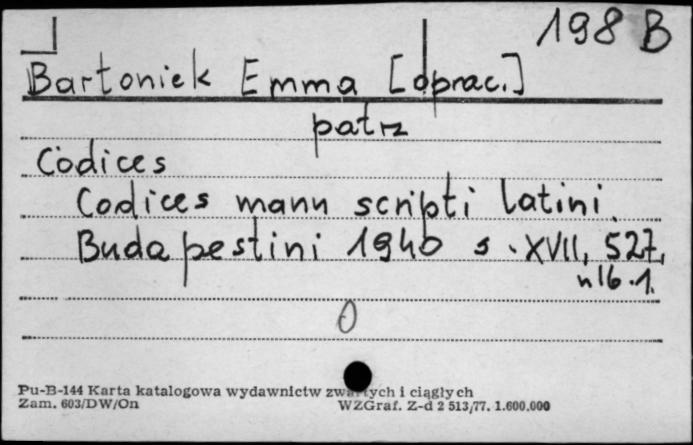 198 B
Bartoniek Emma [oprac.]
patrz
Codices
Codices manu scripti latini.
Budapestini 1940 s. XVII, 527,
nlb. 1.
0
Pu-B-144 Karta katalogowa wydawnictw zwartych i ciągłych
Zam. 603/DW/On WZGraf. Z-d 2 513/77. 1.600.000